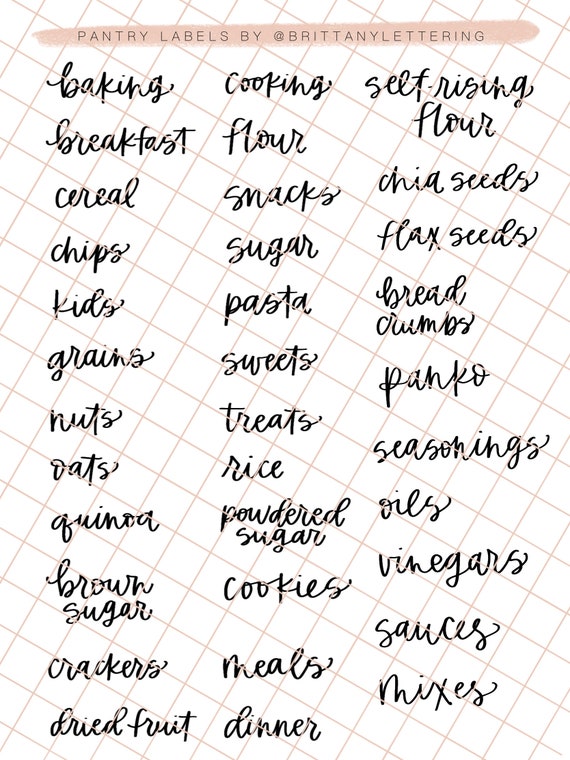 PANTRY LABELS BY @BRITTANYLETTERING
baking
breakfast
cereal
chips
kids
grains
nuts
oats
quinoa
brown
sugar
crackers
dried fruit
cooking
flour
snacks
sugar
pasta
sweets
treats
rice
powdered
sugar
cookies
meals
dinner
self-rising
flour
chia seeds
flax seeds
bread
crumbs
panko
seasonings
oils
vinegars
sauces
mixes